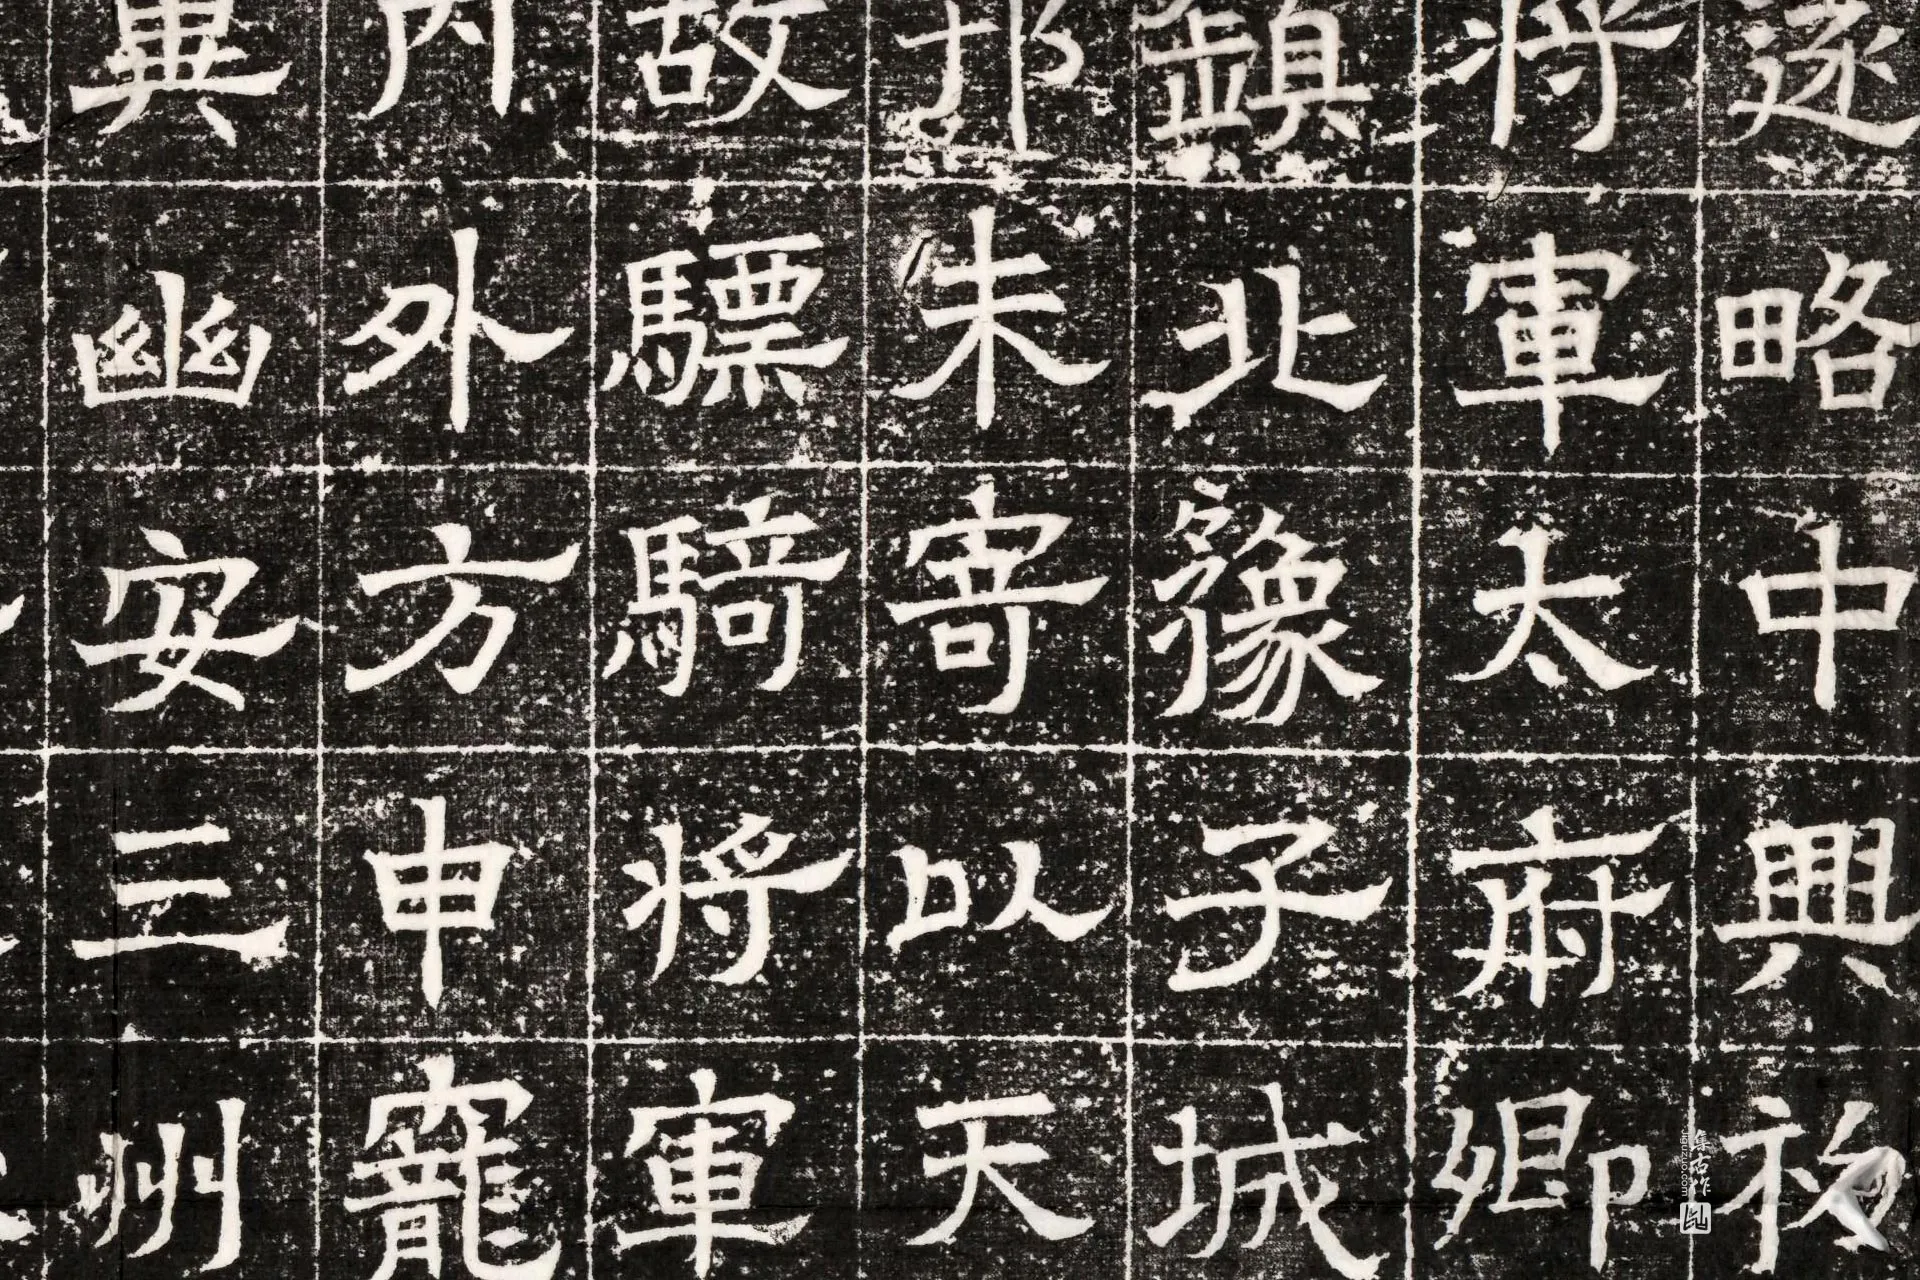 遂略中興初
将軍太府卿
北豫子城
未寄以天
故驃騎将軍
内外方申寵
冀幽安三州
集古作
Jiguzuo.com